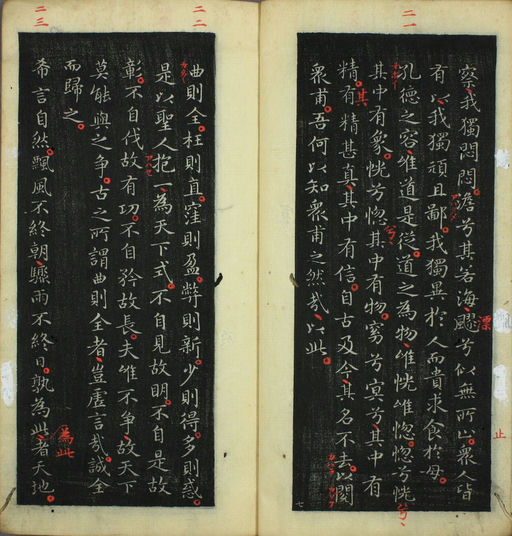 二一
察我獨悶悶澹兮其若海飂兮似無所止衆人皆
漂
止
有以我獨頑且鄙我獨異於人而貴求食於母
孔德之容唯道是從道之為物唯恍唯惚惚兮恍
兮
其中有象恍兮惚其中有物窈兮冥兮其中有
兮
精有精甚真其中有信自古及今其名不去以閱
其
衆甫吾何以知衆甫之然哉以此
七
二二
曲則全枉則直窪則盈弊則新少則得多則惑
是以聖人抱一為天下式不自見故明不自是故
彰不自伐故有功不自矜故長夫唯不爭故天下
莫能與之爭古之所謂曲則全者豈虛言哉誠全
而歸之
二三
希言自然飄風不終朝驟雨不終日孰為此者天地
為此